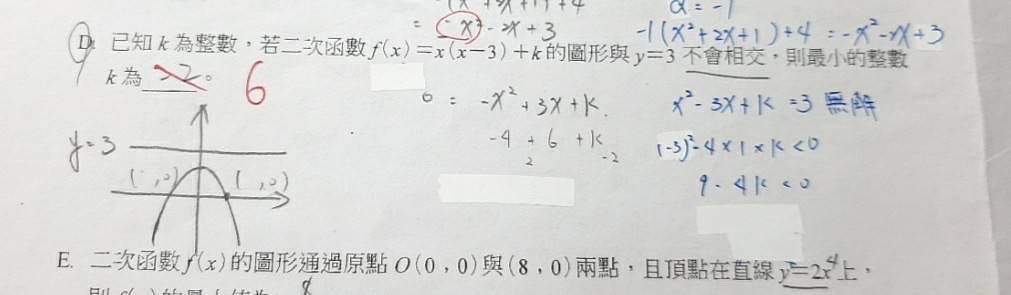 = -x² - 2x + 3
α = -1
-1(x²+2x+1)+4 = -x²-2x+3
D. 已知 k 為整數，若二次函數 f(x)=x(x-3)+k 的圖形與 y=3 不會相交，則最小的整數
k 為 。 6
0 = -x²+3x+k.
x²-3x+k=3 無解
y=3
-4 + 6 + k
(-3)²-4×1×k<0
2 -2
( ,0) ( ,0)
9-4k<0
E. 二次函數 f(x) 的圖形通過原點 O(0,0) 與 (8,0) 兩點，且頂點在直線 y=2x 上，